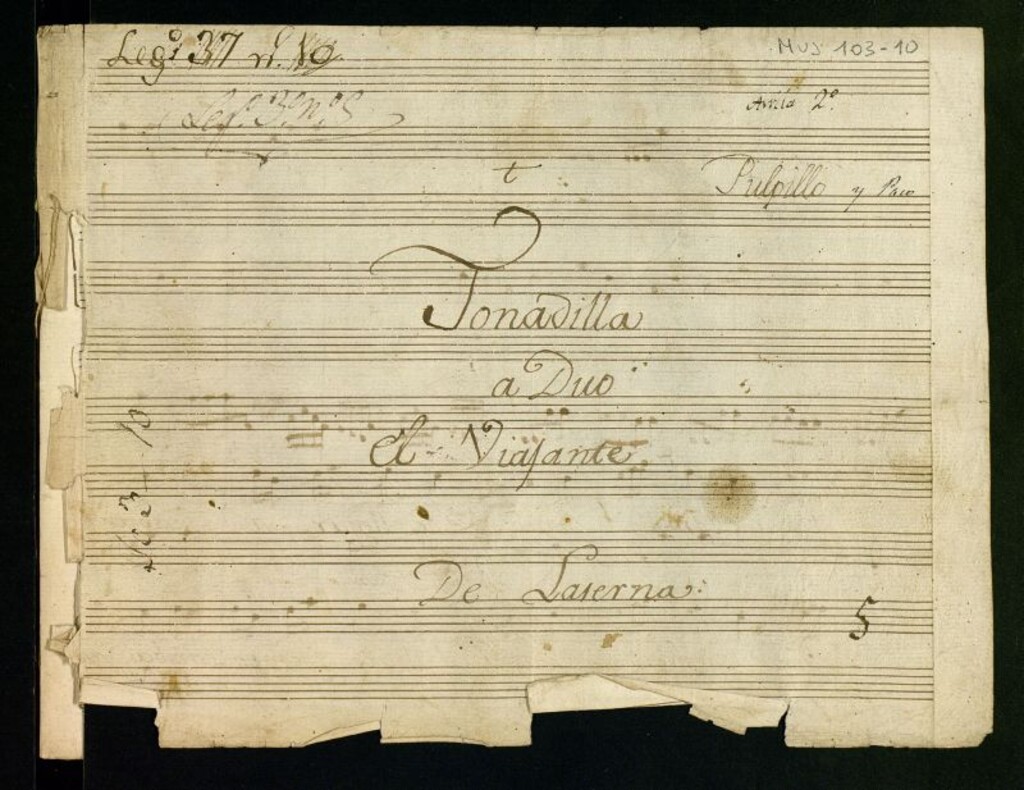 Legº 37 nº 10
MUS 103-10
Legº 3º nº 5
2º
t
Pulpillo y Paco
Tonadilla
a Duo
El Viajante
De Laserna
10
5